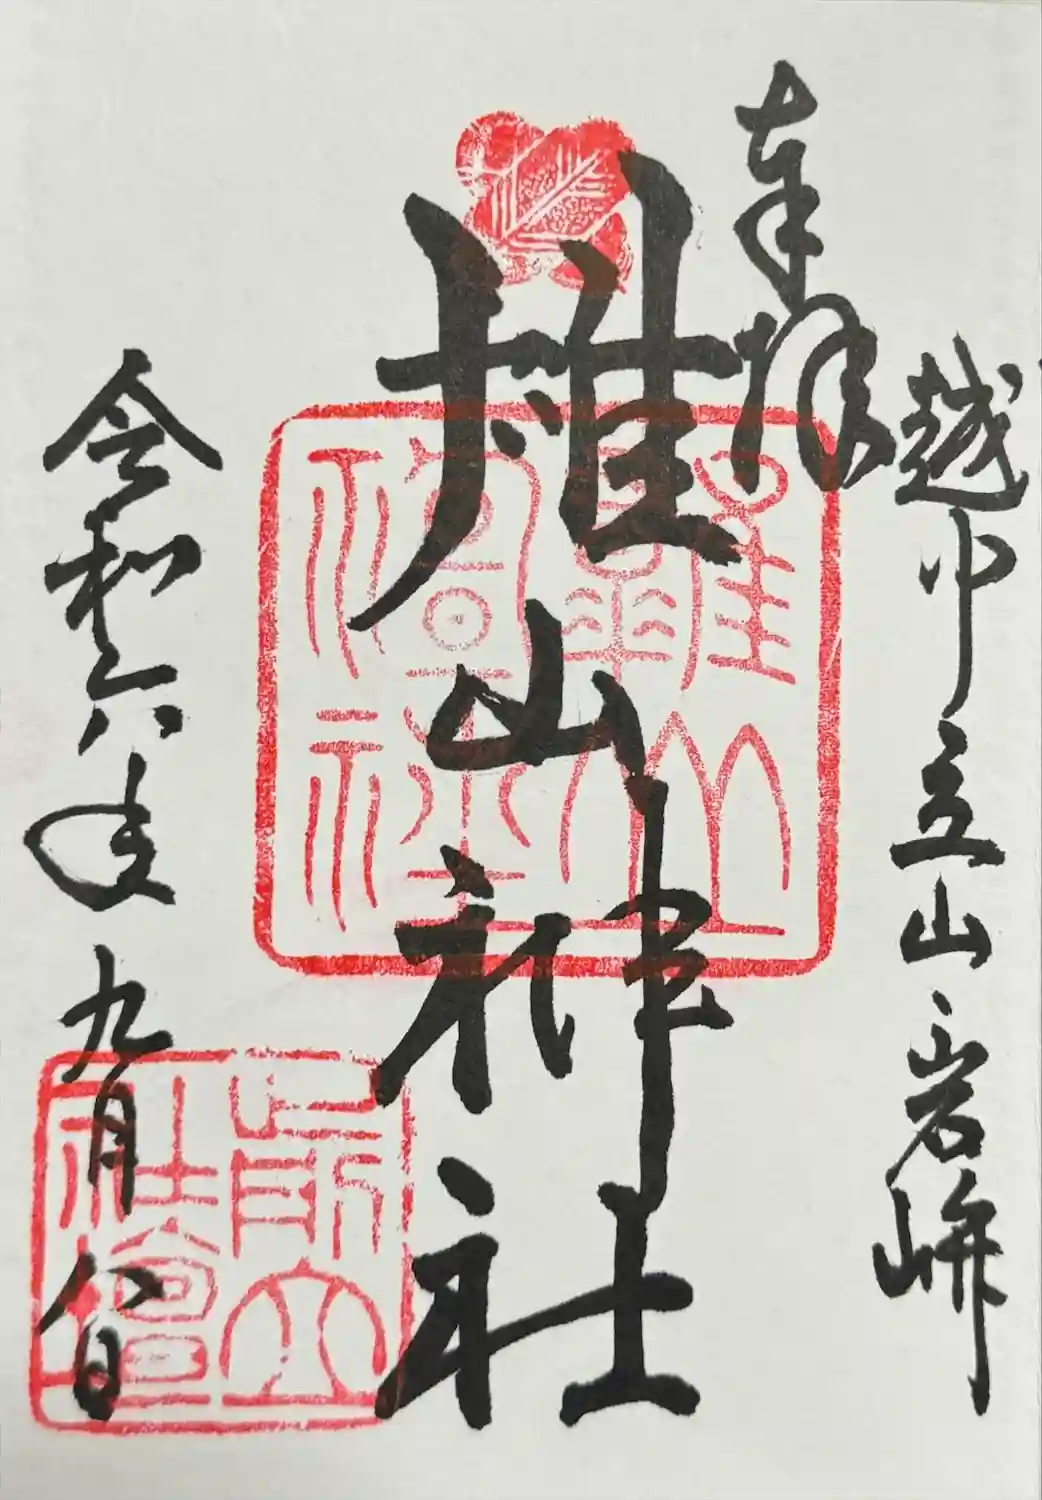 越中立山岩峅
奉拝
雄山神社
令和六年九月八日
雄山
神社
前立
社壇